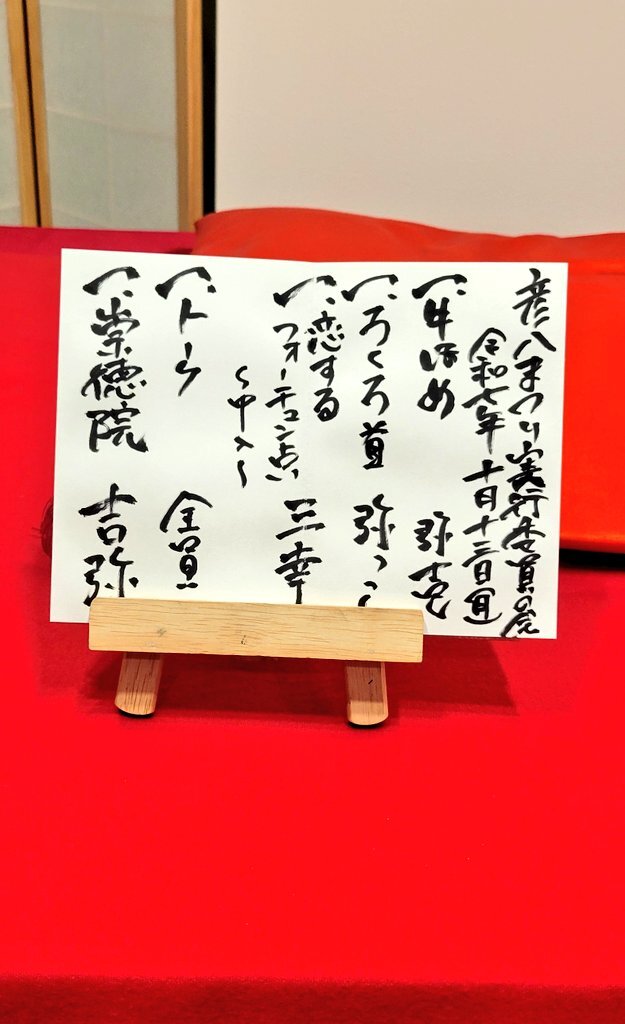 彦八まつり実行委員の会
令和七年 十月十三日
一、牛ほめ 弥壱
一、ろくろ首 弥っこ
一、恋する
フォーチュン点 三幸
〜中入〜
一、トーク 全員
一、崇徳院 吉弥